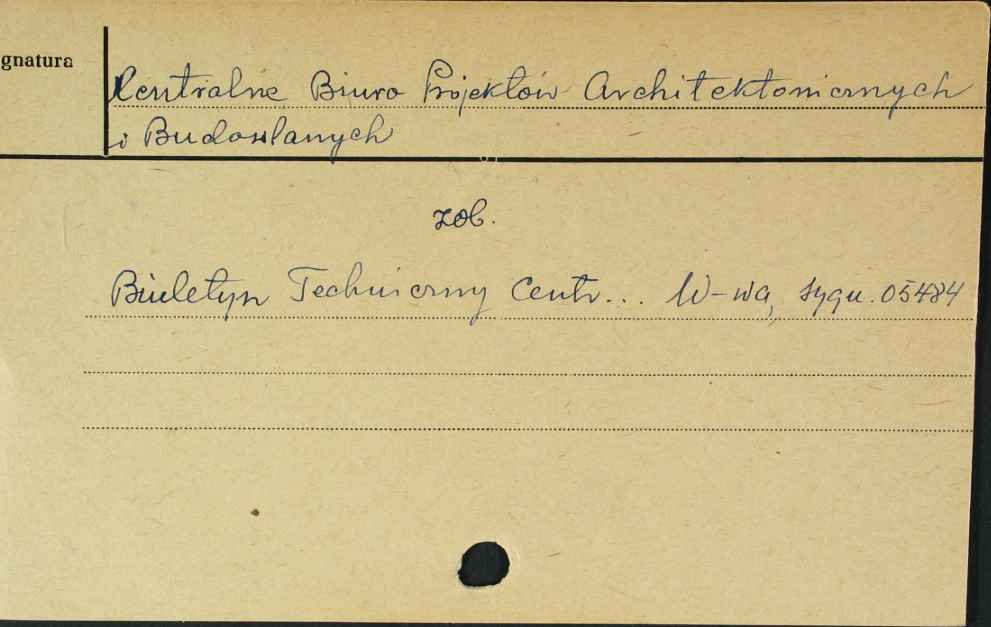 gnatura
Centralne Biuro Projektów Architektonicznych
i Budowlanych
zob.
Biuletyn Techniczny Centr... W-wa, sygn. 05484